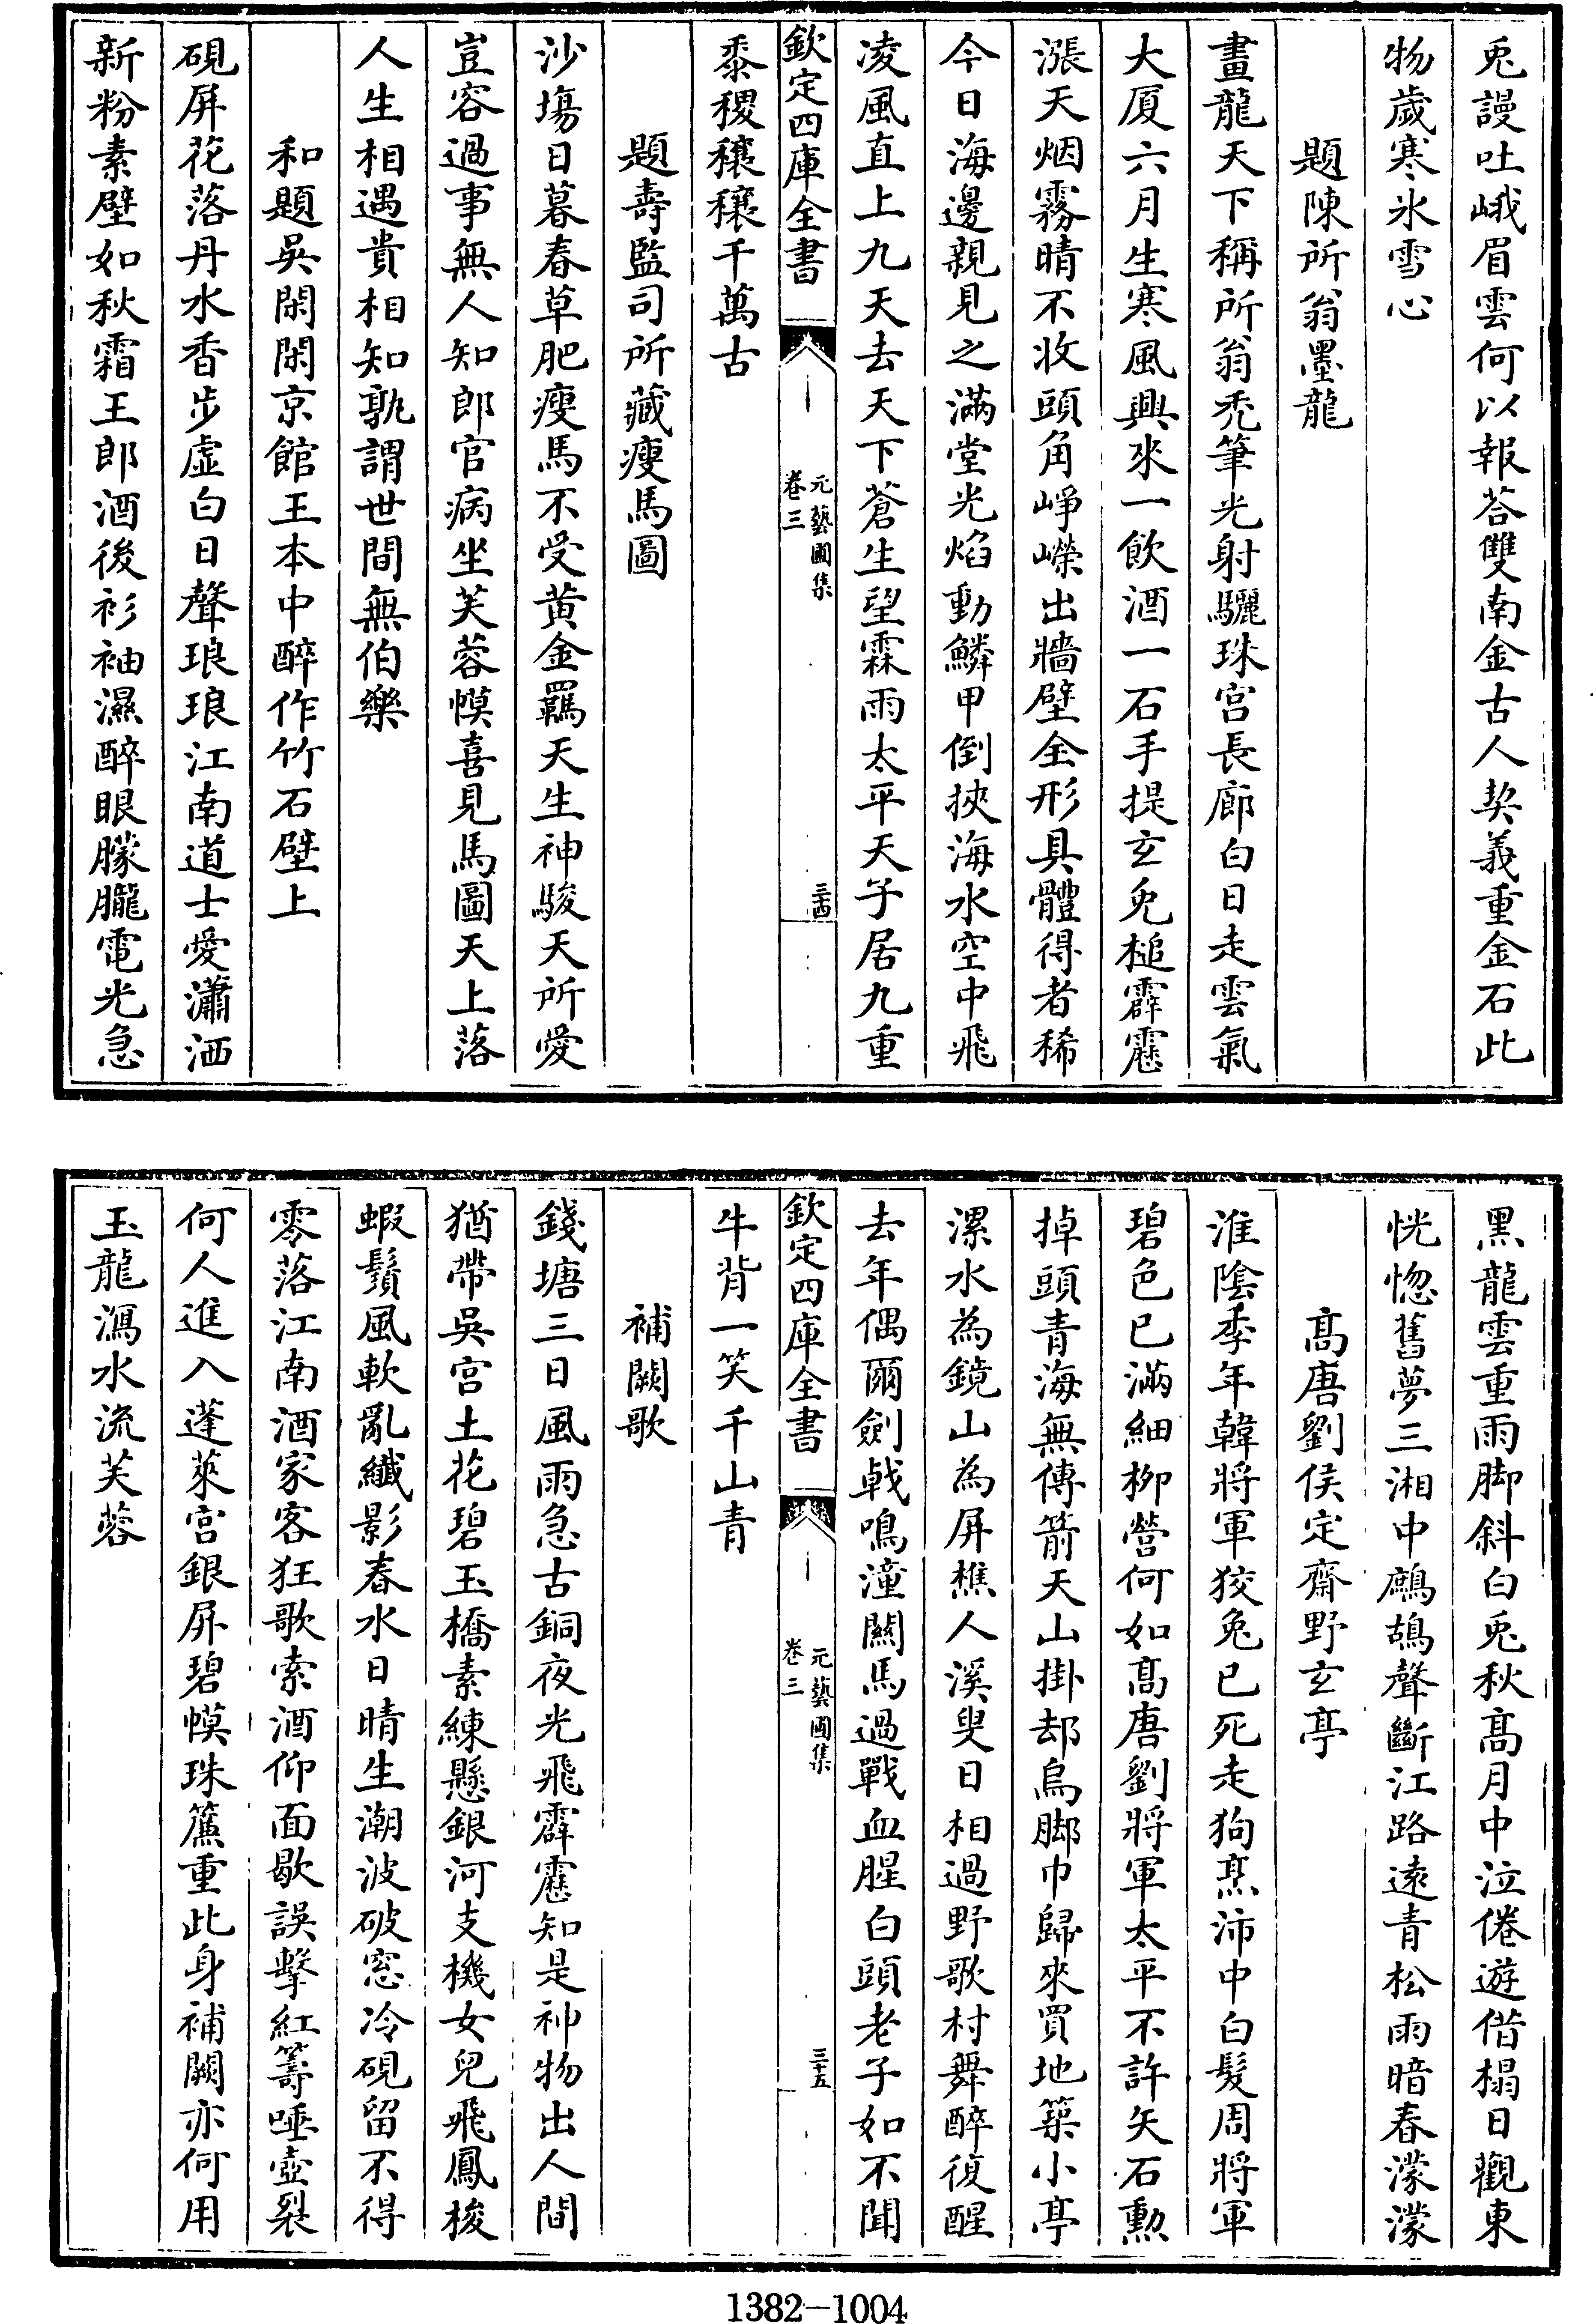 兎謾吐峨眉雲何以報荅雙南金古人契義重金石此
物歲寒氷雪心
題陳所翁墨龍
畫龍天下稱所翁禿筆光射驪珠宫長廊白日走雲氣
大厦六月生寒風興來一飲酒一石手提玄兔槌霹靂
漲天烟霧晴不收頭角崢嶸出牆壁全形具體得者稀
今日海邊親見之滿堂光焰動鱗甲倒挾海水空中飛
凌風直上九天去天下蒼生望霖雨太平天子居九重
欽定四庫全書
元藝圃集
卷三
三十四
黍稷穰穰千萬古
題壽監司所藏瘦馬圖
沙塲日暮春草肥瘦馬不受黄金羈天生神駿天所愛
豈容過事無人知郎官病坐芙蓉幙喜見馬圖天上落
人生相遇貴相知孰謂世間無伯樂
和題吳閑閑京館王本中醉作竹石壁上
硯屏花落丹水香步虚白日聲琅琅江南道士愛瀟洒
新粉素壁如秋霜王郎酒後衫袖濕醉眼朦朧電光急
黑龍雲重雨脚斜白兎秋髙月中泣倦遊借榻日觀東
恍惚舊夢三湘中鷓鴣聲斷江路逺青松雨暗春濛濛
髙唐劉侯定齋野玄亭
淮陰季年韓將軍狡兔已死走狗烹沛中白髮周將軍
碧色已滿細柳營何如髙唐劉將軍太平不許矢石勲
掉頭青海無傳箭天山掛却烏脚巾歸來買地築小亭
漯水為鏡山為屏樵人溪叟日相過野歌村舞醉復醒
去年偶爾劍㦸鳴潼闗馬過戰血腥白頭老子如不聞
欽定四庫全書
元藝圃集
卷三
三十五
牛背一笑千山青
補闕歌
錢塘三日風雨急古銅夜光飛霹靂知是神物出人間
猶帶吳宫土花碧玉橋素練懸銀河支機女兒飛鳳梭
蝦鬚風軟亂纎影春水日晴生潮波破窓冷硯留不得
零落江南酒家客狂歌索酒仰面歇誤擊紅籌唾壺裂
何人進入蓬萊宫銀屏碧幙珠簾重此身補闕亦何用
玉龍瀉水流芙蓉
1382—1004